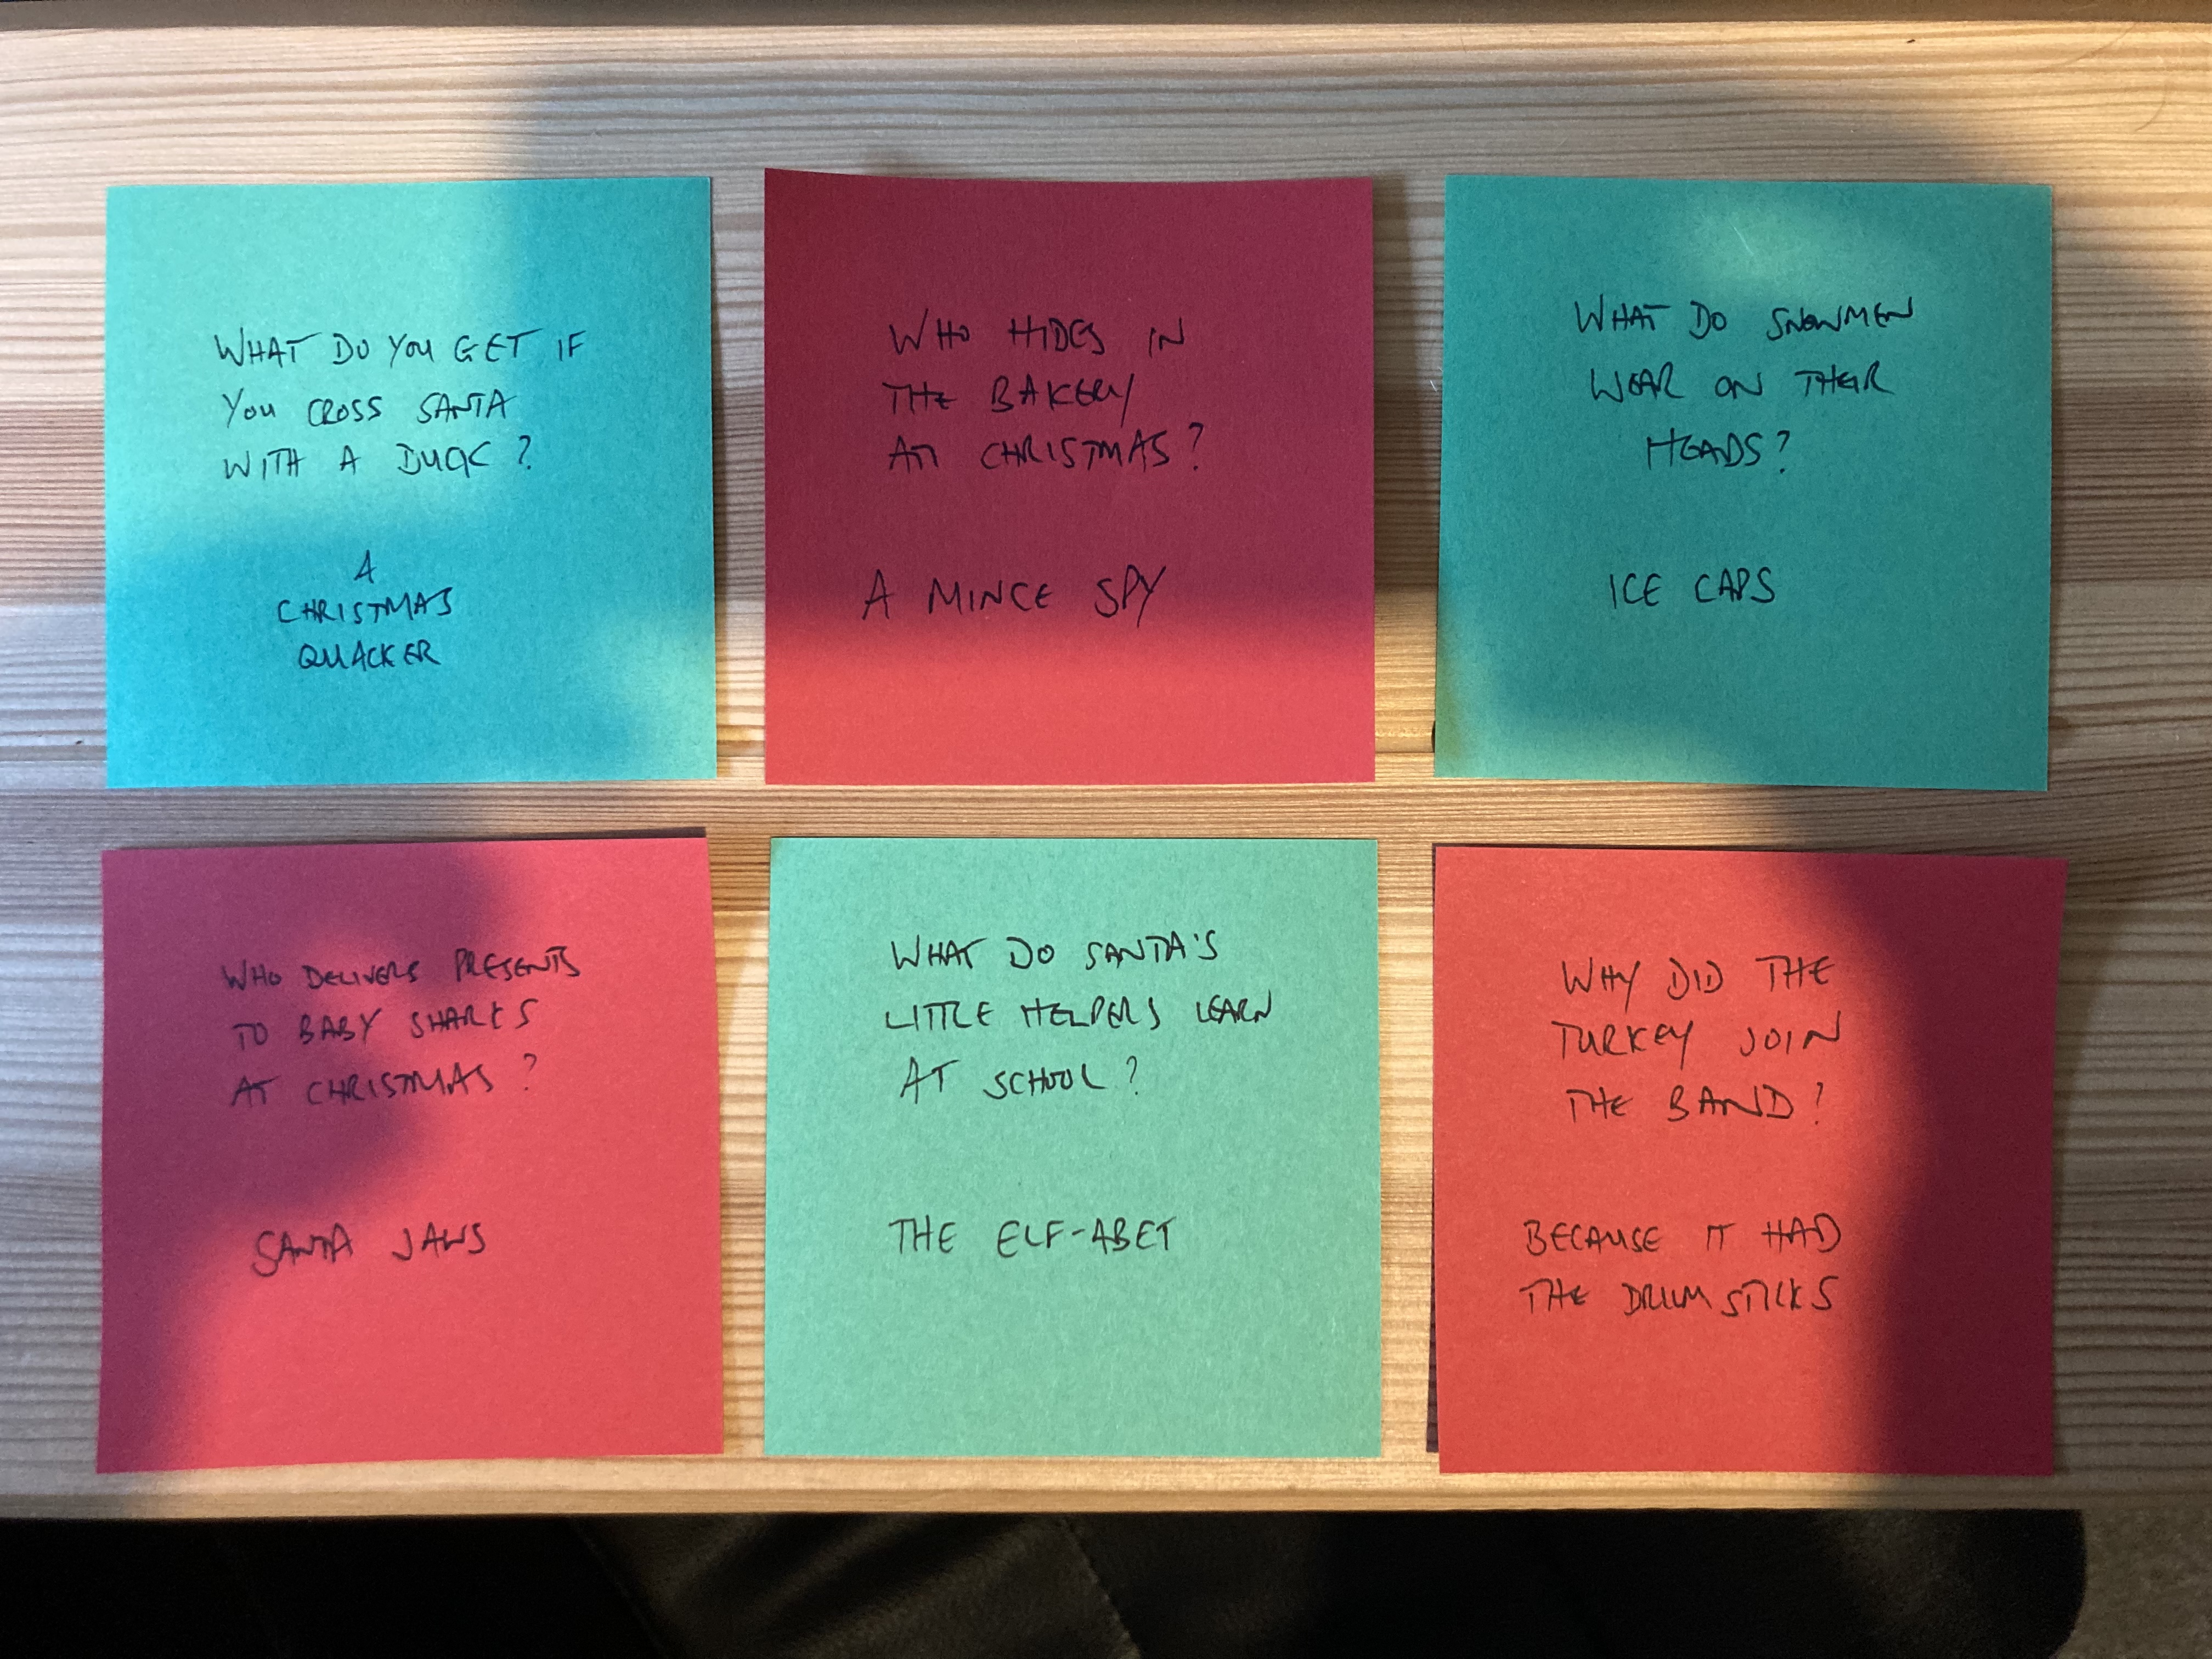 WHAT DO YOU GET IF
YOU CROSS SANTA
WITH A DUCK?
A
CHRISTMAS
QUACKER
WHO HIDES IN
THE BAKERY
AT CHRISTMAS?
A MINCE SPY
WHAT DO SNOWMEN
WEAR ON THEIR
HEADS?
ICE CAPS
WHO DELIVERS PRESENTS
TO BABY SHARKS
AT CHRISTMAS?
SANTA JAWS
WHAT DO SANTA'S
LITTLE HELPERS LEARN
AT SCHOOL?
THE ELF-ABET
WHY DID THE
TURKEY JOIN
THE BAND?
BECAUSE IT HAD
THE DRUMSTICKS